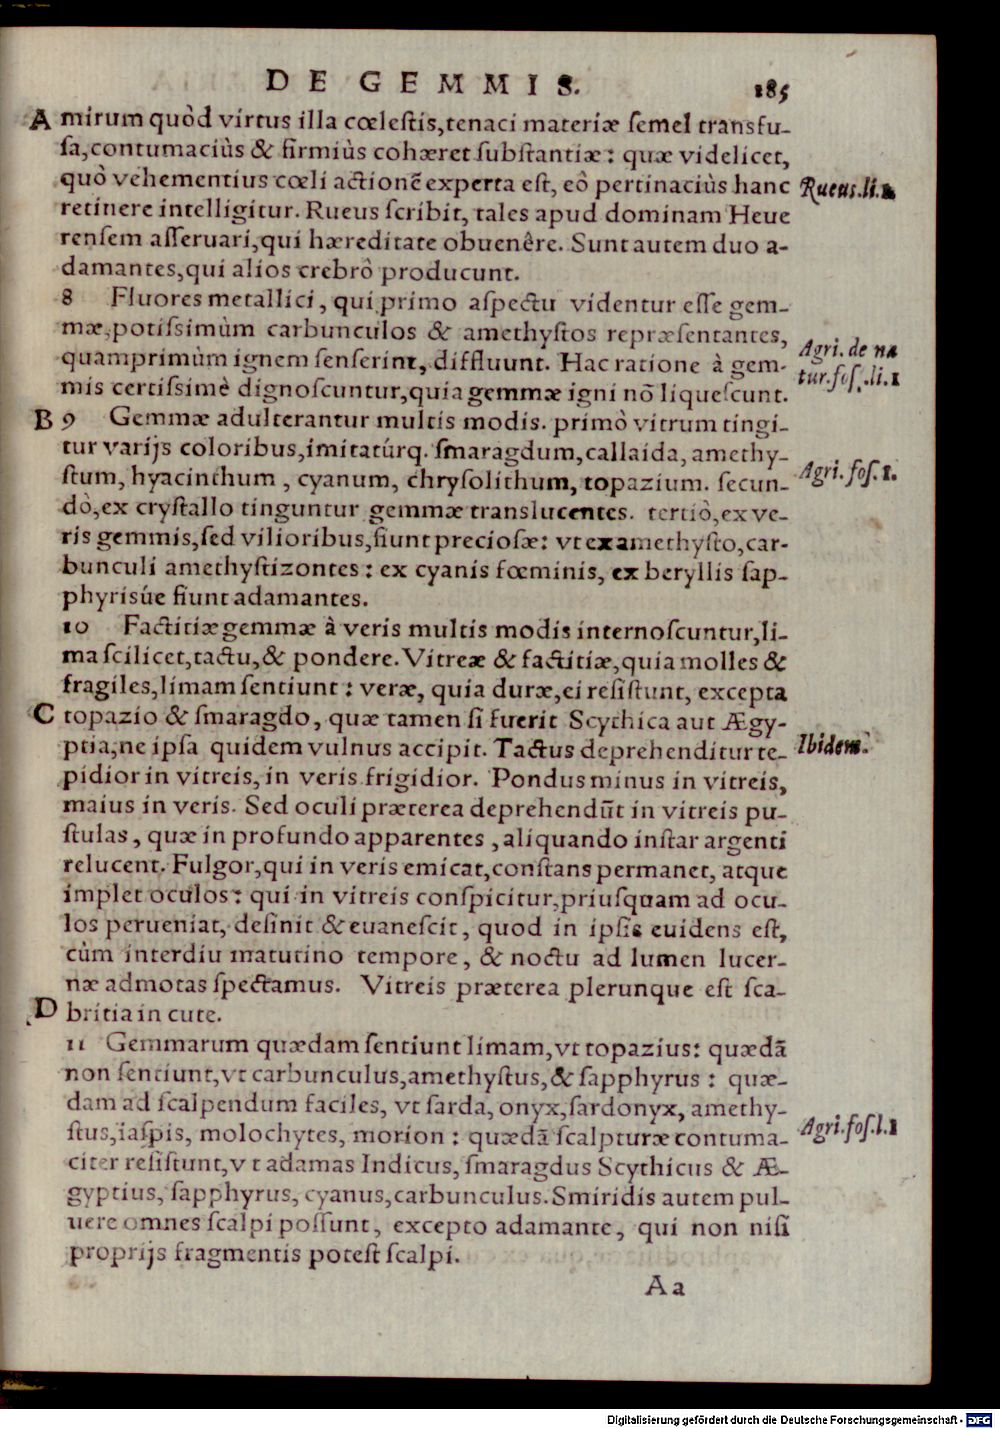 DE GEMMIS. 185
A mirum quòd virtus illa cœleſtis,tenaci materiæ ſemel transfu-
ſa,contumaciùs & firmiùs cohæret ſubſtantiæ: quæ videlicet,
quò vehementius cœli actionē experta eſt, eò pertinaciùs hanc Rueus.li.2
retinere intelligitur. Rueus ſcribit, tales apud dominam Heue
renſem aſſeruari,qui hæreditate obuenêre. Sunt autem duo a-
damantes,qui alios crebrò producunt.
8 Fluores metallici, qui primo aſpectu videntur eſſe gem-
mæ,potiſsimùm carbunculos & amethyſtos repræſentantes, Agri. de na
quamprimùm ignem ſenſerint, diffluunt. Hac ratione à gem- tur.foſ.li.1
mis certiſsimè dignoſcuntur,quia gemmæ igni nō liqueſcunt.
B 9 Gemmæ adulterantur multis modis. primò vitrum tingi-
tur varijs coloribus,imitatúrq. ſmaragdum,callaida, amethy-
ſtum, hyacinthum, cyanum, chryſolithum, topazium. ſecun- Agri.foſ.1.
dò,ex cryſtallo tinguntur gemmæ translucentes. tertiò,ex ve-
ris gemmis,ſed vilioribus,fiunt precioſæ: vt ex amethyſto,car-
bunculi amethyſtizontes: ex cyanis fœminis, ex beryllis ſap-
phyrisúe fiunt adamantes.
10 Factitiæ gemmæ à veris multis modis internoſcuntur,li-
ma ſcilicet,tactu,& pondere. Vitreæ & factitiæ,quia molles &
fragiles,limam ſentiunt: veræ, quia duræ,ei reſiſtunt, excepta
C topazio & ſmaragdo, quæ tamen ſi fuerit Scythica aut Ægy-
ptia,ne ipſa quidem vulnus accipit. Tactus deprehenditur te- Ibidem.
pidior in vitreis, in veris frigidior. Pondus minus in vitreis,
maius in veris. Sed oculi præterea deprehendūt in vitreis pu-
ſtulas, quæ in profundo apparentes, aliquando inſtar argenti
relucent. Fulgor,qui in veris emicat,conſtans permanet, atque
implet oculos: qui in vitreis conſpicitur,priuſquam ad ocu-
los perueniat, deſinit & euaneſcit, quod in ipſis euidens eſt,
cùm interdiu matutino tempore, & noctu ad lumen lucer-
næ admotas ſpectamus. Vitreis præterea plerunque eſt ſca-
D britia in cute.
11 Gemmarum quædam ſentiunt limam,vt topazius: quædā
non ſentiunt,vt carbunculus,amethyſtus,& ſapphyrus: quæ-
dam ad ſcalpendum faciles, vt ſarda, onyx,ſardonyx, amethy-
ſtus,iaſpis, molochytes, morion: quædā ſcalpturæ contuma- Agri.foſ.l.1
citer reſiſtunt,vt adamas Indicus, ſmaragdus Scythicus & Æ-
gyptius, ſapphyrus, cyanus,carbunculus. Smiridis autem pul-
uere omnes ſcalpi poſſunt, excepto adamante, qui non niſi
proprijs fragmentis poteſt ſcalpi.
Aa
Digitalisierung gefördert durch die Deutsche Forschungsgemeinschaft - DFG